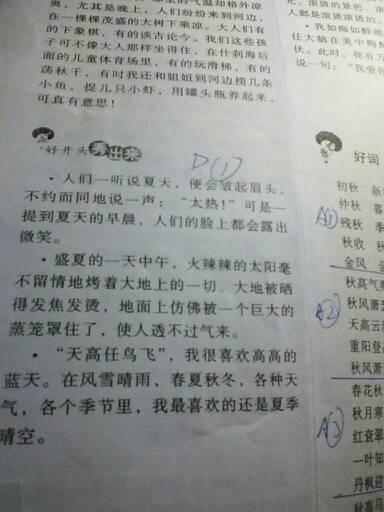 爽，尤其是晚上，人们纷纷来到河边，
在一棵棵茂盛的大树下乘凉。大人们有
的下象棋，有的谈古论今。我们这些孩
子可不像大人那样坐得住，在什刹海后
面的儿童体育场里，有的玩滑梯，有的
荡秋千，有时我还和姐姐到河边捞几条
小鱼，捉几只小虾，用罐头瓶养起来，
可真有意思！
好开头 秀出来
D①
·人们一听说夏天，便会皱起眉头，
不约而同地说一声：“太热！”可是一
提到夏天的早晨，人们的脸上都会露出
微笑。
·盛夏的一天中午，火辣辣的太阳毫
不留情地烤着大地上的一切。大地被晒
得发焦发烫，地面上仿佛被一个巨大的
蒸笼罩住了，使人透不过气来。
·“天高任鸟飞”，我很喜欢高高的
蓝天。在风雪晴雨，春夏秋冬，各种天
气，各个季节里，我最喜欢的还是夏季
晴空。
人都是滚烫滚烫的
·我如痴如醉地
任大脑在美中陶
伏。此时，我有万
说一句：“我爱
好词
初秋 新
仲秋 暮
A① 残秋 季
秋收 秋
金风 金
秋高气爽
A② 秋风萧
天高云
重阳登高
秋风萧
春花秋
秋月寒
A③ 红衰翠
一叶知
丹枫迎
秋高马